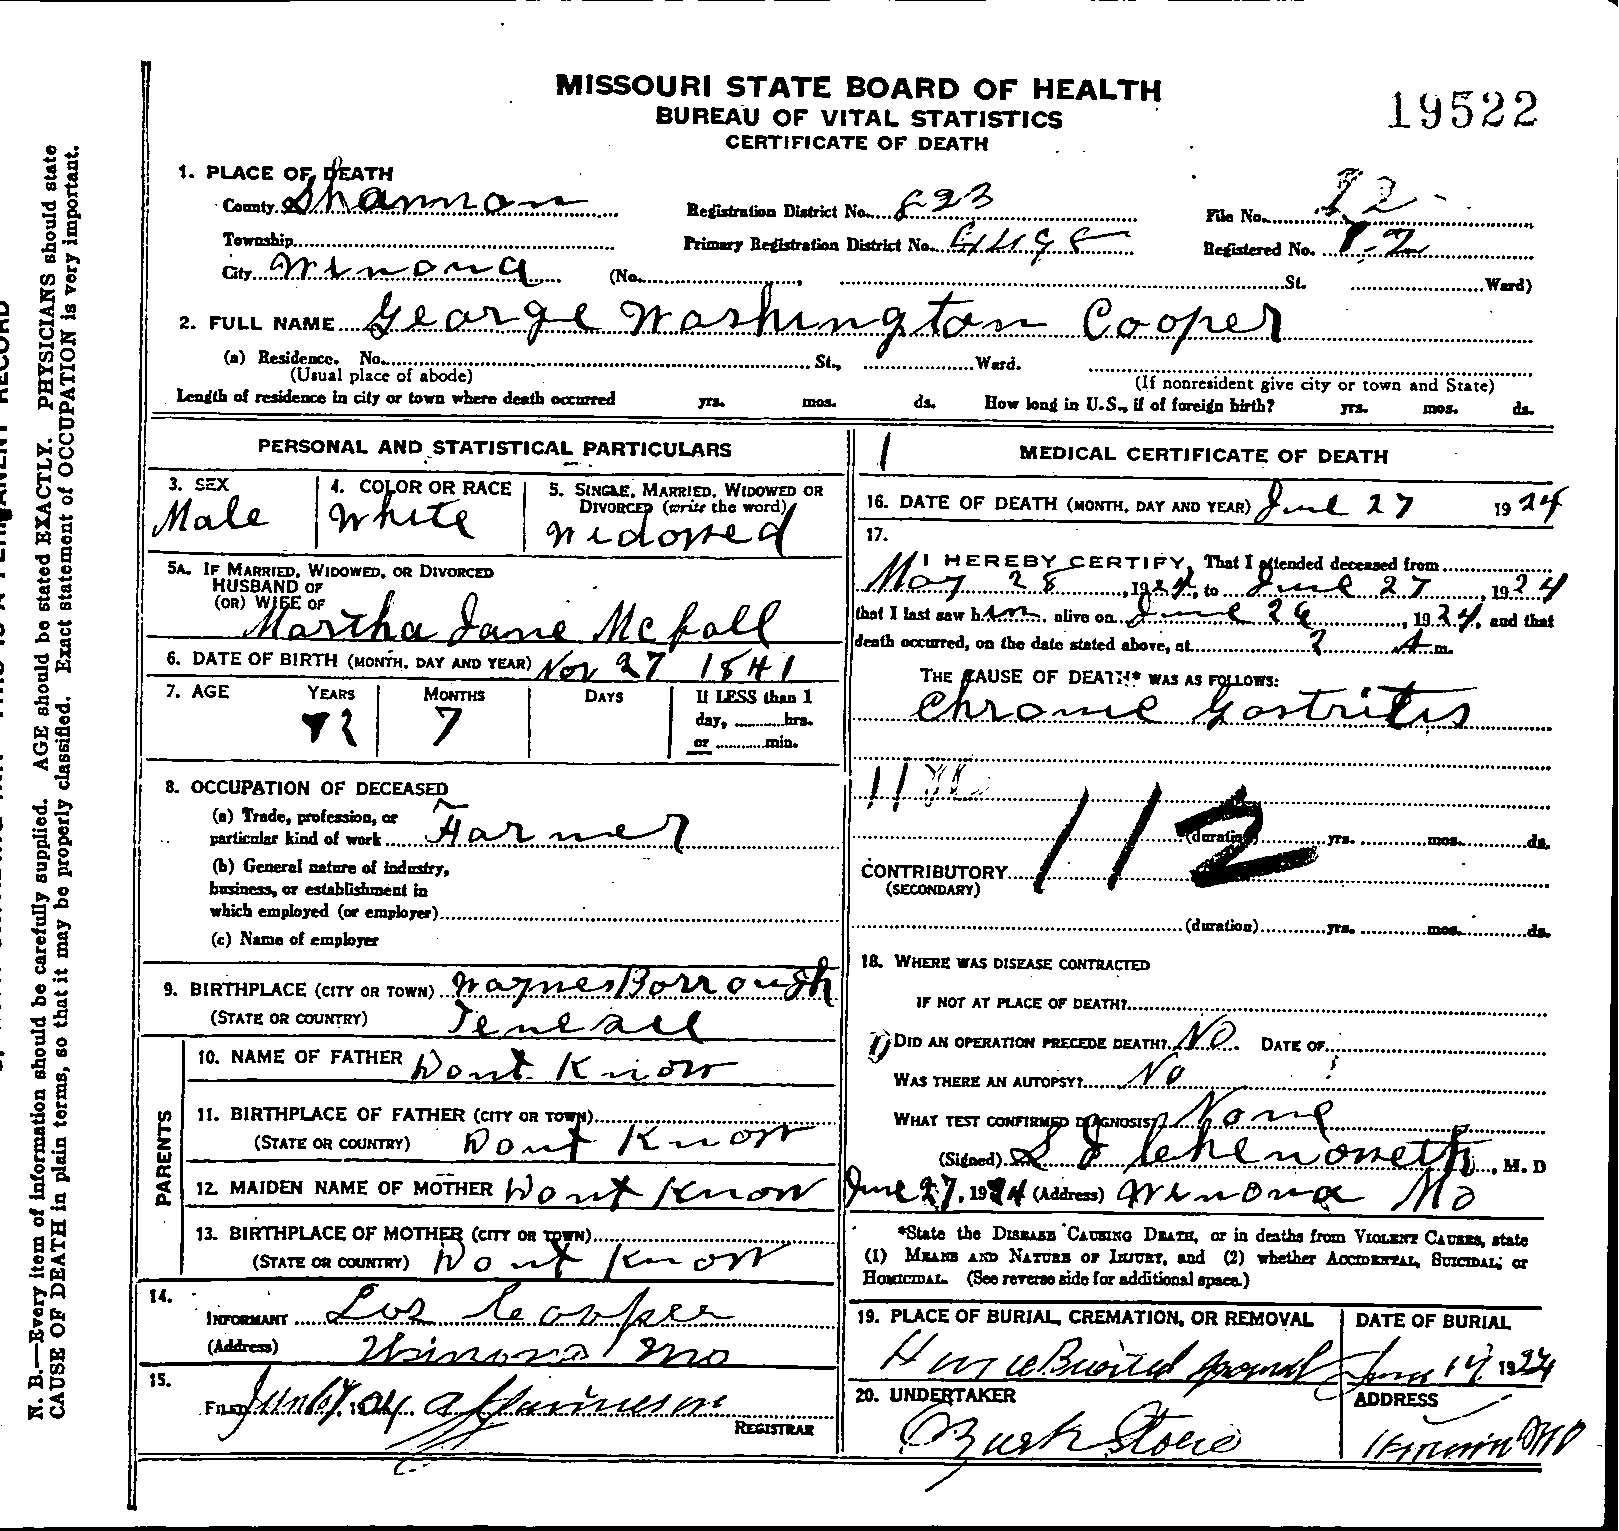 MISSOURI STATE BOARD OF HEALTH
BUREAU OF VITAL STATISTICS
CERTIFICATE OF DEATH
19522
1. PLACE OF DEATH
County Shannon Registration District No. 823 File No. 12
Township Primary Registration District No. Registered No.
City Winona (No. , St. Ward)
2. FULL NAME George Washington Cooper
(a) Residence. No. St., Ward.
(Usual place of abode) (If nonresident give city or town and State)
Length of residence in city or town where death occurred yrs. mos. ds. How long in U.S., if of foreign birth? yrs. mos. ds.
PERSONAL AND STATISTICAL PARTICULARS
3. SEX
Male
4. COLOR OR RACE
White
5. SINGLE, MARRIED, WIDOWED OR
DIVORCED (write the word)
Widowed
5A. IF MARRIED, WIDOWED, OR DIVORCED
HUSBAND OF
(OR) WIFE OF
Martha Jane McFall
6. DATE OF BIRTH (MONTH, DAY AND YEAR) Nov 27 1841
7. AGE YEARS MONTHS DAYS If LESS than 1
day, hrs.
or min.
7
8. OCCUPATION OF DECEASED
(a) Trade, profession, or
particular kind of work Farmer
(b) General nature of industry,
business, or establishment in
which employed (or employer)
(c) Name of employer
9. BIRTHPLACE (CITY OR TOWN) WaynesBorrough
(STATE OR COUNTRY)
PARENTS
10. NAME OF FATHER Dont Know
11. BIRTHPLACE OF FATHER (CITY OR TOWN)
(STATE OR COUNTRY) Dont Know
12. MAIDEN NAME OF MOTHER Dont Know
13. BIRTHPLACE OF MOTHER (CITY OR TOWN)
(STATE OR COUNTRY) Dont Know
14.
INFORMANT Cooper
(Address) Winona Mo
15.
FILED
REGISTRAR
1
MEDICAL CERTIFICATE OF DEATH
16. DATE OF DEATH (MONTH, DAY AND YEAR) June 27 1924
17.
I HEREBY CERTIFY, That I attended deceased from
May 28, 1924, to June 27, 1924
that I last saw him alive on June 26, 1924, and that
death occurred, on the date stated above, at 2 A m.
THE CAUSE OF DEATH* WAS AS FOLLOWS:
Chronic Gastritis
112
(duration) yrs. mos. ds.
CONTRIBUTORY
(SECONDARY)
(duration) yrs. mos. ds.
18. WHERE WAS DISEASE CONTRACTED
IF NOT AT PLACE OF DEATH?
DID AN OPERATION PRECEDE DEATH? No. DATE OF
WAS THERE AN AUTOPSY? No
WHAT TEST CONFIRMED DIAGNOSIS? None
(Signed) Chenoweth, M. D
June 27, 1924 (Address) Winona Mo
*State the DISEASE CAUSING DEATH, or in deaths from VIOLENT CAUSES, state
(1) MEANS AND NATURE OF INJURY, and (2) whether ACCIDENTAL, SUICIDAL, or
HOMICIDAL. (See reverse side for additional space.)
19. PLACE OF BURIAL, CREMATION, OR REMOVAL
DATE OF BURIAL
1924
20. UNDERTAKER
ADDRESS
N. B.—Every item of information should be carefully supplied. AGE should be stated EXACTLY. PHYSICIANS should state
CAUSE OF DEATH in plain terms, so that it may be properly classified. Exact statement of OCCUPATION is very important.